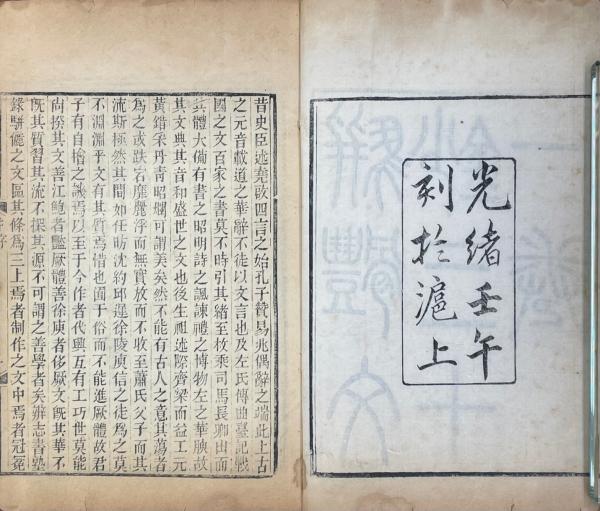 光緒壬午
刻於滬上
昔史臣述堯啟四言之始孔子贊易兆偶辭之端此上古
之元音載道之華辭不徒以文言也及左氏傳曲臺記戰
國之文百家之書莫不時引其緒至枚乘司馬長卿出而
其體大備有書之昭明詩之諷諫禮之博物左之華腴故
其文典其音和盛世之文也後生祖述際齊梁而益工元
黃錯采丹青昭爛可謂美矣然不能有古人之意其蕩者
爲之或跌宕靡麗浮而無實放而不收至蕭氏父子而其
流斯極然其間如任昉沈約邱遲徐陵庾信之徒爲之莫
不淵淵乎文有其質焉惜也囿于俗而不能進厥體故君
子有自檜之譏焉以至于今作者代興互有工巧世莫能
尚揆其文善江鮑者豔厥體善徐庾者侈厥文既其華不
既其質習其流不探其源不可謂之善學者矣辨志書塾
錄駢儷之文區其條爲三上焉者制作之文中焉者冠冕